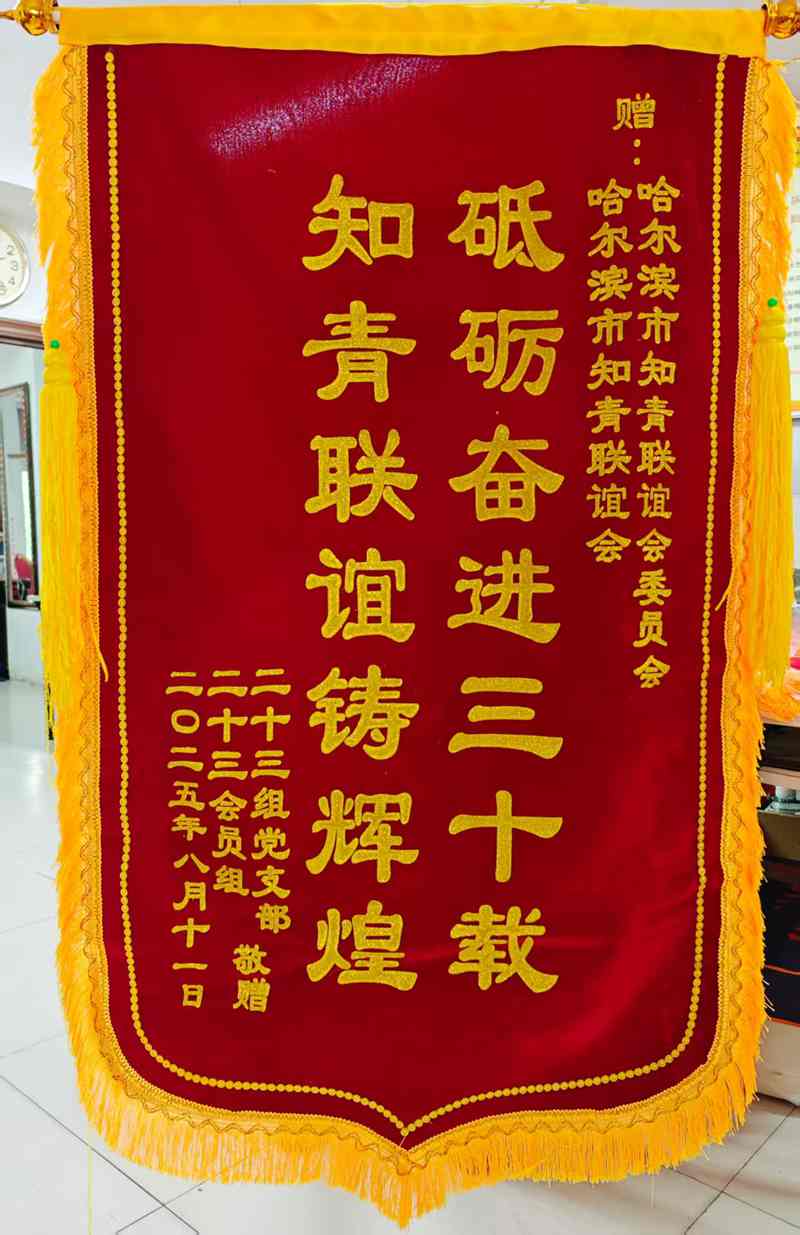 赠：
哈尔滨市知青联谊会委员会
哈尔滨市知青联谊会
砥砺奋进三十载
知青联谊铸辉煌
二十三组党支部
二十三会员组
敬赠
二〇二五年八月十一日